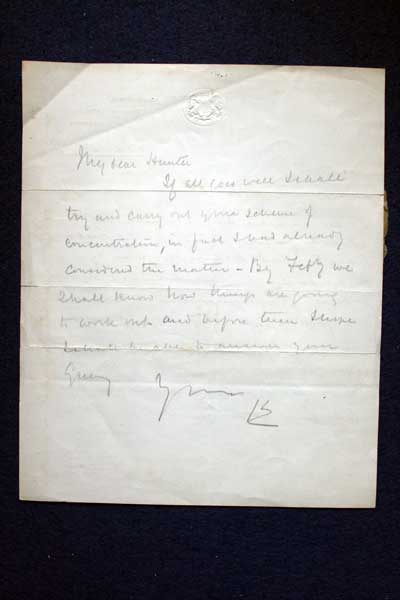 My dear Hunter
If all goes well I shall
try and carry out your scheme of
concentration, in fact I had already
considered the matter - By Feby we
shall know how things are going
to work out and before then I hope
I shall be able to answer your
query
Yours
K